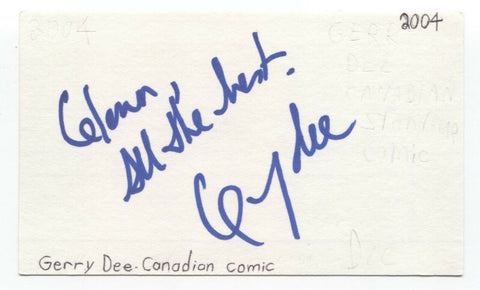 2004
2004
GERR
DEE
CANADIAN
STANDUP
COMIC
Glenn,
All the best.
Gerry Dee
Dec
Gerry Dee-Canadian comic